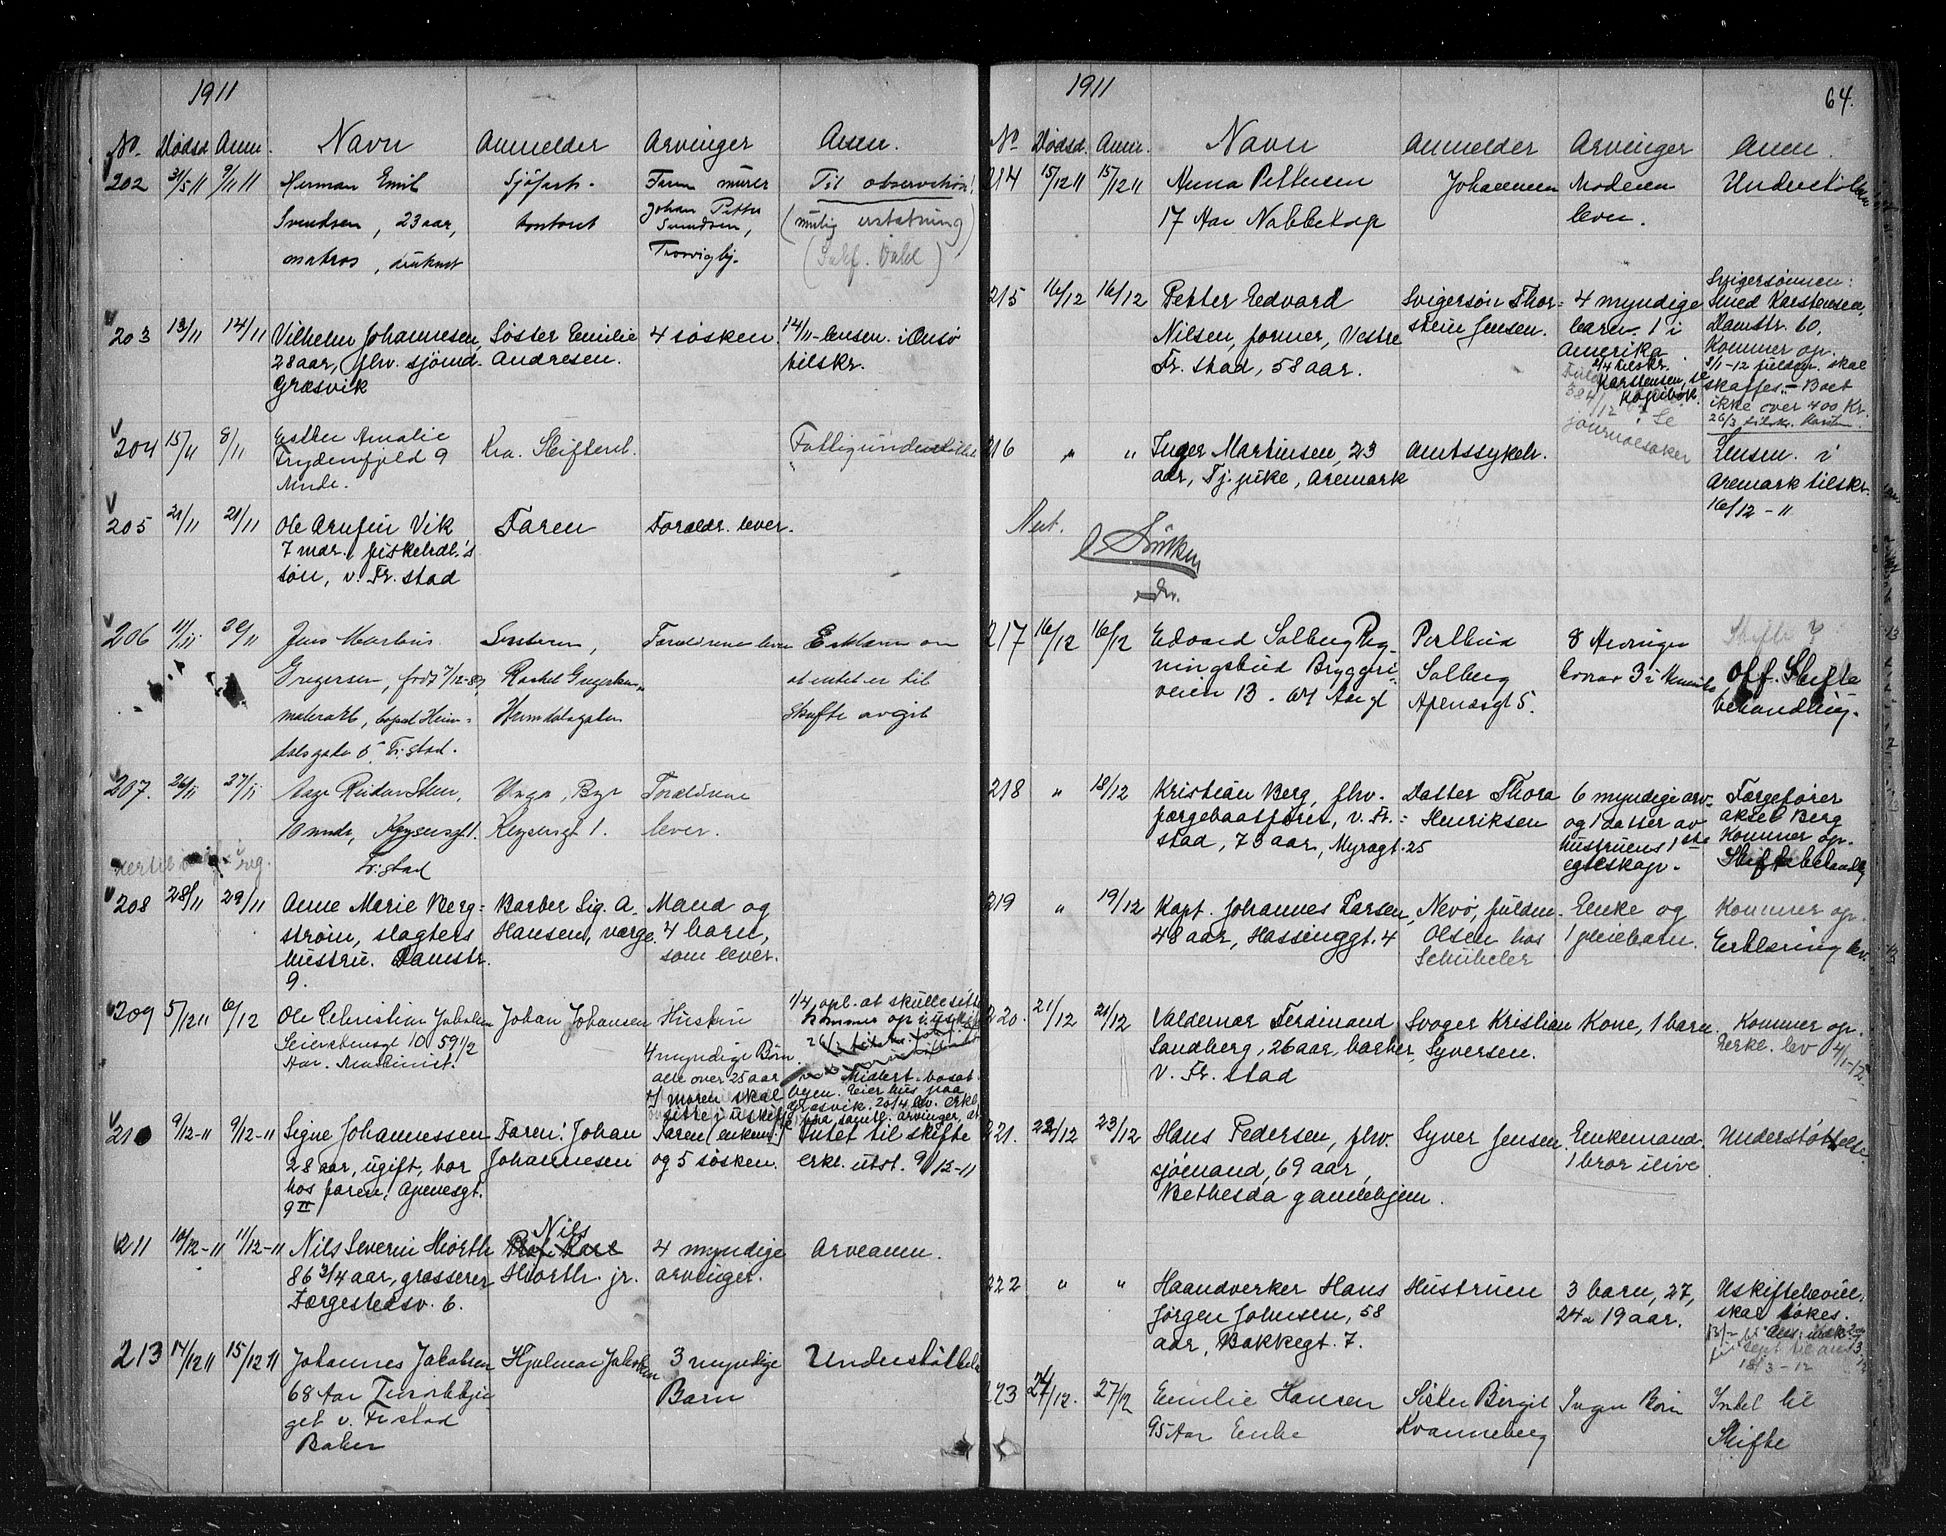 1911
No. Dødsd. Anm. Navn Anmelder Arvinger Anm.
202 31/5 11 9/11 11 Herman Emil Sjøfarts- Faren murer Til observation!
Svendsen, 23 aar, kontoret Johan Petter (mulig erstatning)
matros, druknet Svendsen,
Torsvigbj.
203 13/11 14/11 Vilhelm Johannesen, Søster Emilie 4 søsken. 14/11 - lensm. i Onsø
28 aar, fhv. sjømd. Andresen. tilskr.
Græsvik
204 15/11 8/11 Esther Amalie Kra. Skifteret. Fattigunderstøttet
Frydenfjeld 9
Mnde.
205 21/11 21/11 Ole Arnfin Vik Faren Forældr. lever.
7 mdr. fiskehdl.'s
søn, v. Fr. stad
206 11/11 20/11 Jens Martins Søsteren, Forældrene lever Erklæm om
Gregersen, født 7/12-89 Rachel Gregersen, at intet er til
matersk, bopæl Heim- Heimdalsgaten skifte avgit
dalsgate 5 Fr. stad.
207. 26/11 27/11 Aage Reidar Steen, Unge, Byr Forældrene
10 mndr, Keysersgt 1. Keysersgt 1. lever.
Fr. stad
208 28/11 29/11 Anne Marie Berg- Barber Sig. A. Mand og
strøm, slagters Hansen, værge. 4 barn,
hustru. Damstr. som lever.
9.
209 5/12 11 6/12 Ole Christian Jakobsen Johan Johansen Hustru 1/4 opl. at skulle sitte
Seierstensgt 10 59 1/2 4 myndige Børn. kommer op
Aar. Maskinist. alle over 25 aar Midlert. bosat
moren skal byen. Eier hus paa
sitte i uskifte Græsvik. 20/4 lev. erkl.
fra samtl. arvinger
210 9/12-11 9/12-11 Signe Johannessen Faren: Johan Faren (enkem.) Intet til skifte
28 aar, ugift, bor Johannesen og 5 søsken. erkl. utst. 9/12-11
hos faren, Apenesgt.
9 II
211 10/12-11 11/12-11 Nils Severin Hiorth Nils 4 myndige Arveanm.
86 3/4 aar, grosserer Hiorth jr. arvinger.
Færgestedsv. 6.
213 14/12 11 15/12 11 Johannes Jakobsen Hjalmar Jakobsen 3 myndige Understøttelse
68 Aar Barn
get v. Fr stad
Baker
1911 64.
No Dødsd. Anm. Navn Anmelder Arvinger Anm.
214 15/12 11 15/12 11 Anna Pettersen Johannesen Moderen Understøttelse
17 Aar Nabbetorp lever.
215 16/12 16/12 Petter Edvard Svigersøn Thor- 4 myndige Svigersønnen:
Nilsen, former, Vestre stein Jensen. barn. 1 i Smed Karstensen,
Fr. stad, 58 aar. Amerika. Damstr. 60,
Kommer op.
2/1-12 fuldm. skal
skaffes. - Boet
ikke over 400 Kr.
26/3 tilskr. Karsten
journalsaker
216 " " Inger Martinsen, 23 Amtssykeh. Lensm. i
aar, Tj. pike, Aremark Aremark tilskr.
16/12 - 11
217 16/12 16/12 Edvard Solberg Reg- Perlbud 8 Arvinger Skifte ?
ningsbud Bryggeri- Solberg hvorav 3 i Amerika Off. Skifte
veien 13. 64 Aargl Apenesgt 5. behandling.
218 " 18/12 Kristian Berg, fhv. Datter Thora 6 myndige arv. Færgefører
færgebaatfører, v. Fr.- Henriksen og 1 datter av Aksel Berg
stad, 73 aar, Myragt. 25 hustruens 1ste Kommer op.
egteskap. Skiftebehandling
219 " 19/12 Kapt. Johannes Larsen, Nevø, fuldm. Enke og Kommer op.
48 aar, Hassinggt. 4 Olsen hos 1 pleiebarn. Erklæring lev.
Schübeler
220. 21/12 21/12 Valdemar Ferdinand Svoger Kristian Kone, 1 barn. Kommer op.
Sandberg, 26 aar, barber, Syversen. Erkl. lev 4/1-12.
v. Fr. stad
221. 22/12 23/12 Hans Pedersen, fhv. Syver Jensen. Enkemand. Understøttelse.
sjømand, 69 aar, 1 bror ilive
Bethesda gamlehjem.
222 " " Haandverker Hans Hustruen 3 barn, 27, Uskiftebevill.
Jørgen Johnsen, 58 24 19 aar. skal søkes.
aar, Bakkegt. 7. 18/3 - 12
223 24/12. 27/12 Emilie Hansen Søster Birgit Ingen Børn Intet til
95 Aar Enke Kvanneberg Skifte